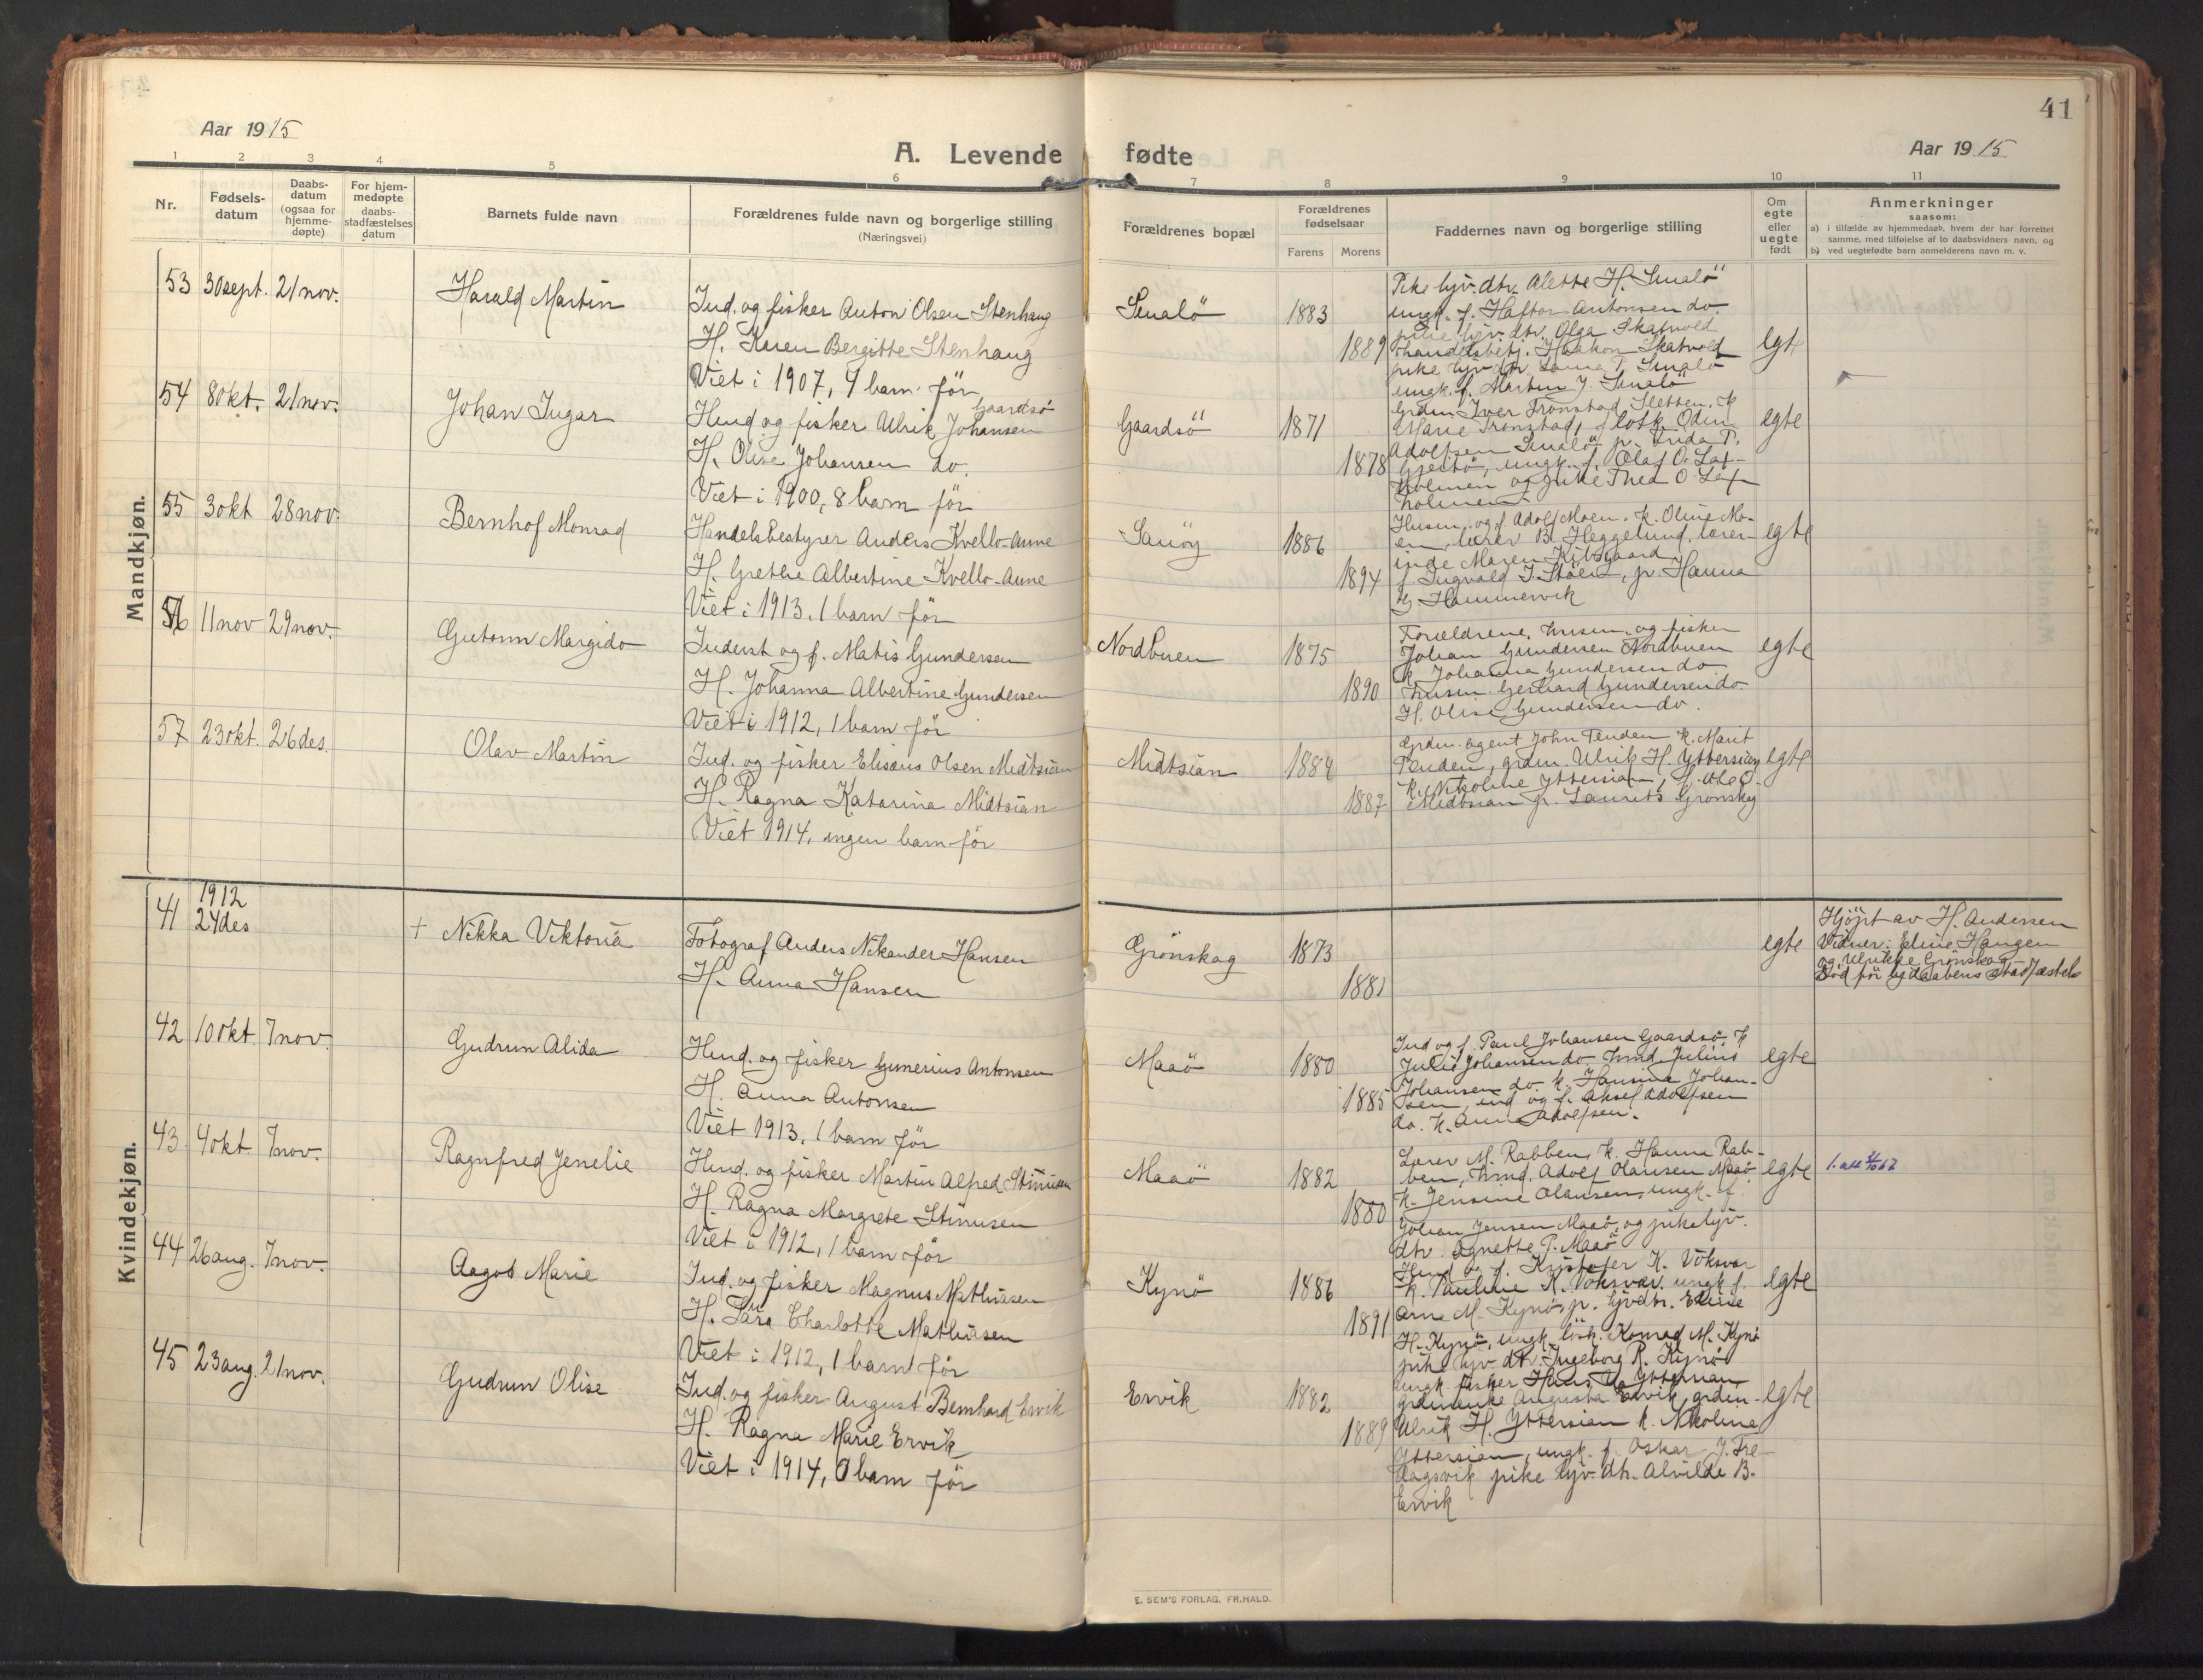 41
Aar 1915
A. Levende fødte
Aar 1915
1 2 3 4 5 6 7 8 9 10 11
Nr.
Fødsels-
datum
Daabs-
datum
(ogsaa for
hjemme-
døpte)
For hjem-
medøpte
daabs-
stadfæstelses
datum
Barnets fulde navn
Forældrenes fulde navn og borgerlige stilling
(Næringsvei)
Forældrenes bopæl
Forældrenes
fødselsaar
Farens Morens
Faddernes navn og borgerlige stilling
Om
egte
eller
uegte
født
Anmerkninger
saasom:
a) i tilfælde av hjemmedaab, hvem der har forrettet
samme, med tilføielse af to daabsvidners navn, og
b) ved uegtefødte barn anmelderens navn m. v.
Mandkjøn.
53 30 sept. 21 nov.
Harald Martin
Ind. og fisker Anton Olsen Stenhaug
H. Karen Bergitte Stenhaug
Viet i 1907, 4 barn før
Smalö
1883
1889
Pike hjv. dtr. Alette H. Smalö
ungk. f. Haftor Antonsen do.
pike hjv dtr. Olga Skatvold
handelsbetj. Haakon Skatvold
pike hjv dtr Lovise P. Smalö
ungk. f. Martin J. Smalö
egte
54 8 okt. 21 nov.
Johan Ingar
Gaardsö
Hmd og fisker Ulrik Johansen
H. Olise Johansen do.
Viet i 1900, 8 barn før
Gaardsö
1871
1878
Grdm. Iver Tronstad Sletten. K
Marie Tronstad, losk. Odin
Adolfsen Smalö p. Frida P.
ungk. f. Olaf O. Lax-
holmen og pike Thea O Lax
holmen
egte
55 3 okt 28 nov.
Bernhof Monrad
Handelsbestyrer Anders Kvello-Aune
H. Grethe Albertine Kvello-Aune
Viet i 1913. 1 barn før
Sauöy
1886
1894
Husm. og f. Adolf Moen. k. Oline Mo-
en, lærer B. Heggelund, lærer-
inde Maren Kibsgaard
f Ingvald J. Stölen, p. Hanna
Hammervik
egte
56 11 nov 29 nov.
Gutorm Margido
Inderst og f. Matis Gundersen
H. Johanna Albertine Gundersen
Viet i 1912, 1 barn før
Nordbuen
1875
1890
Forældrene, husm. og fisker
Johan Gundersen Nordbuen
k. Johanna Gundersen do
husm. Gerhard Gundersen do.
H. Olise Gundersen do.
egte
57 23 okt. 26 des.
Olav Martin
Ind. og fisker Elisæus Olsen Midtsian
H. Ragna Katarina Midtsian
Viet 1914, ingen barn før
Midtsian
1884
1887
Grdm. agent John Tenden K. Marit
Tenden, grdm. Ulrik H. Yttersian
k. Nikoline Yttersian, f. Ole O.
Midtsian p. Laurits Grønskag
egte
Kvindekjøn.
41 1912
24 des
+ Nikka Viktoria
Fotograf Anders Nikander Hansen
H. Anna Hansen
Grönskag
1873
1881
egte
Hjdpt av H. Andersen
Vidner: Eline Haugen
og Ulrikke Grönskag
Död før hjdaabens stadfæstels
42 10 okt. 7 nov.
Gudrun Alida
Hmd. og fisker Gunerius Antonsen
H. Anna Antonsen
Viet 1913. 1 barn før
Maaö
1880
1885
Ind og f. Paul Johansen Gaardsö. K
Julie Johansen do hmd. Julius
Johansen do. k. Hansine Johan-
sen, ind og f. Aksel Adolfsen
do. k. Anna Adolfsen.
egte
43 4 okt 7 nov.
Ragnfred Jenelie
Hmd. og fisker Martin Alfred Stinusen
H. Ragna Margrete Stinusen
Viet i 1912, 1 barn før
Maaö
1882
1880
Lærer M. Rabben, k. Hanna Rab-
ben, hmd. Adolf Olausen Maaö
k. Jensine Olausen, ungk. f.
Johan Jensen Maaö, og pike hjv.
dtr. Agnette P. Maaö
egte
44 26 aug. 7 nov.
Aagot Marie
Ind. og fisker Magnus Mathiasen
H. Lara Charlotte Mathiasen
Viet i 1912, 1 barn før
Kynö
1886
1891
Hmd og f. Kristofer K. Voksvær
k. Pauline K. Voksvær. ungk f.
Arne M. Kynö, p. hjvdtr. Elise
H. Kynö, ungk. losk. Konrad M. Kynö
pike hjv dtr. Ingeborg R. Kynö
egte
45 23 aug. 21 nov.
Gudrun Olise
Ind. og fisker August Bernhard Ervik
H. Ragna Marie Ervik
Viet i 1914, 0 barn før
Ervik
1882
1889
ungk. fisker Hans U. Yttersian
grdmenke Augusta Ervik, grdm-
Ulrik H. Yttersian k. Nikoline
Yttersian, ungk. f. Oskar J. Fre-
dagsvik pike hjv. dtr. Alvilde B.
Ervik
egte
E. SEM'S FORLAG, FR.HALD.